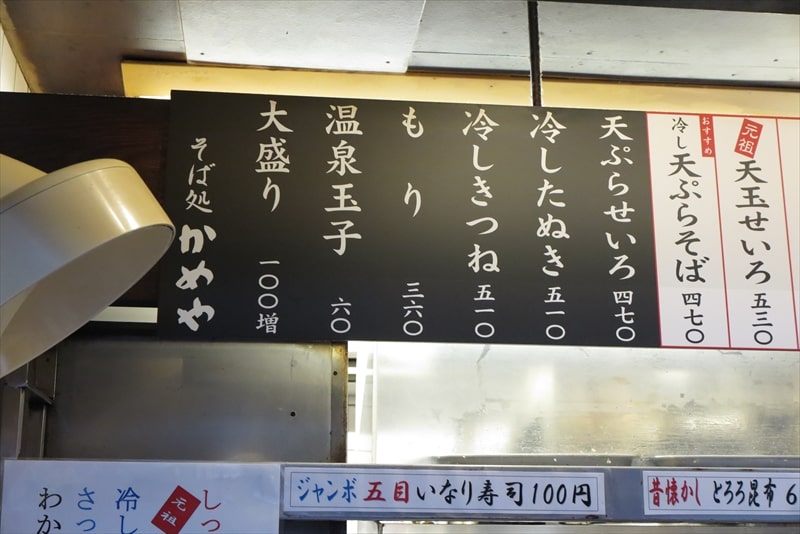 元祖
天玉せいろ 五三〇
おすすめ
冷し天ぷらそば 四七〇
天ぷらせいろ 四七〇
冷したぬき 五一〇
冷しきつね 五一〇
もり 三六〇
温泉玉子 六〇
大盛り 一〇〇増
そば処 かめや
しっ
元祖
冷し
さっ
わか
ジャンボ五目いなり寿司100円
昔懐かし とろろ昆布 6